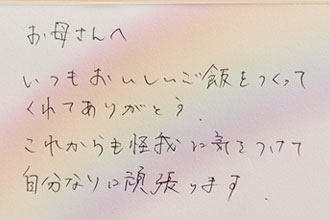 お母さんへ
いつもおいしいご飯をつくって
くれてありがとう.
これからも怪我に気をつけて
自分なりに頑張ります.